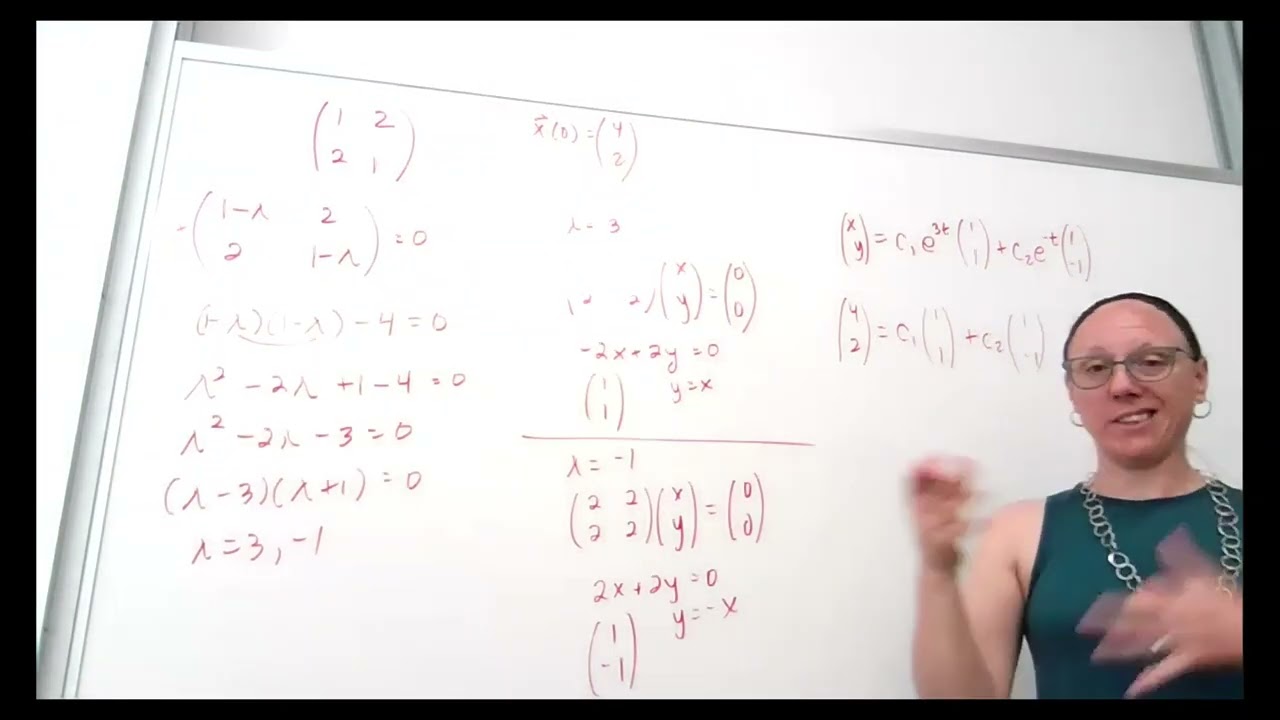 (1 2
2 1)
-(1-λ 2
2 1-λ) = 0
(1-λ)(1-λ) - 4 = 0
λ² - 2λ + 1 - 4 = 0
λ² - 2λ - 3 = 0
(λ-3)(λ+1) = 0
λ = 3, -1
x⃗(0) = (4
2)
λ = 3
(2 2)(x
y) = (0
0)
-2x + 2y = 0
y = x
(1
1)
λ = -1
(2 2
2 2)(x
y) = (0
0)
2x + 2y = 0
y = -x
(1
-1)
(x
y) = c₁e³ᵗ(1
1) + c₂e⁻ᵗ(1
-1)
(4
2) = c₁(1
1) + c₂(1
-1)